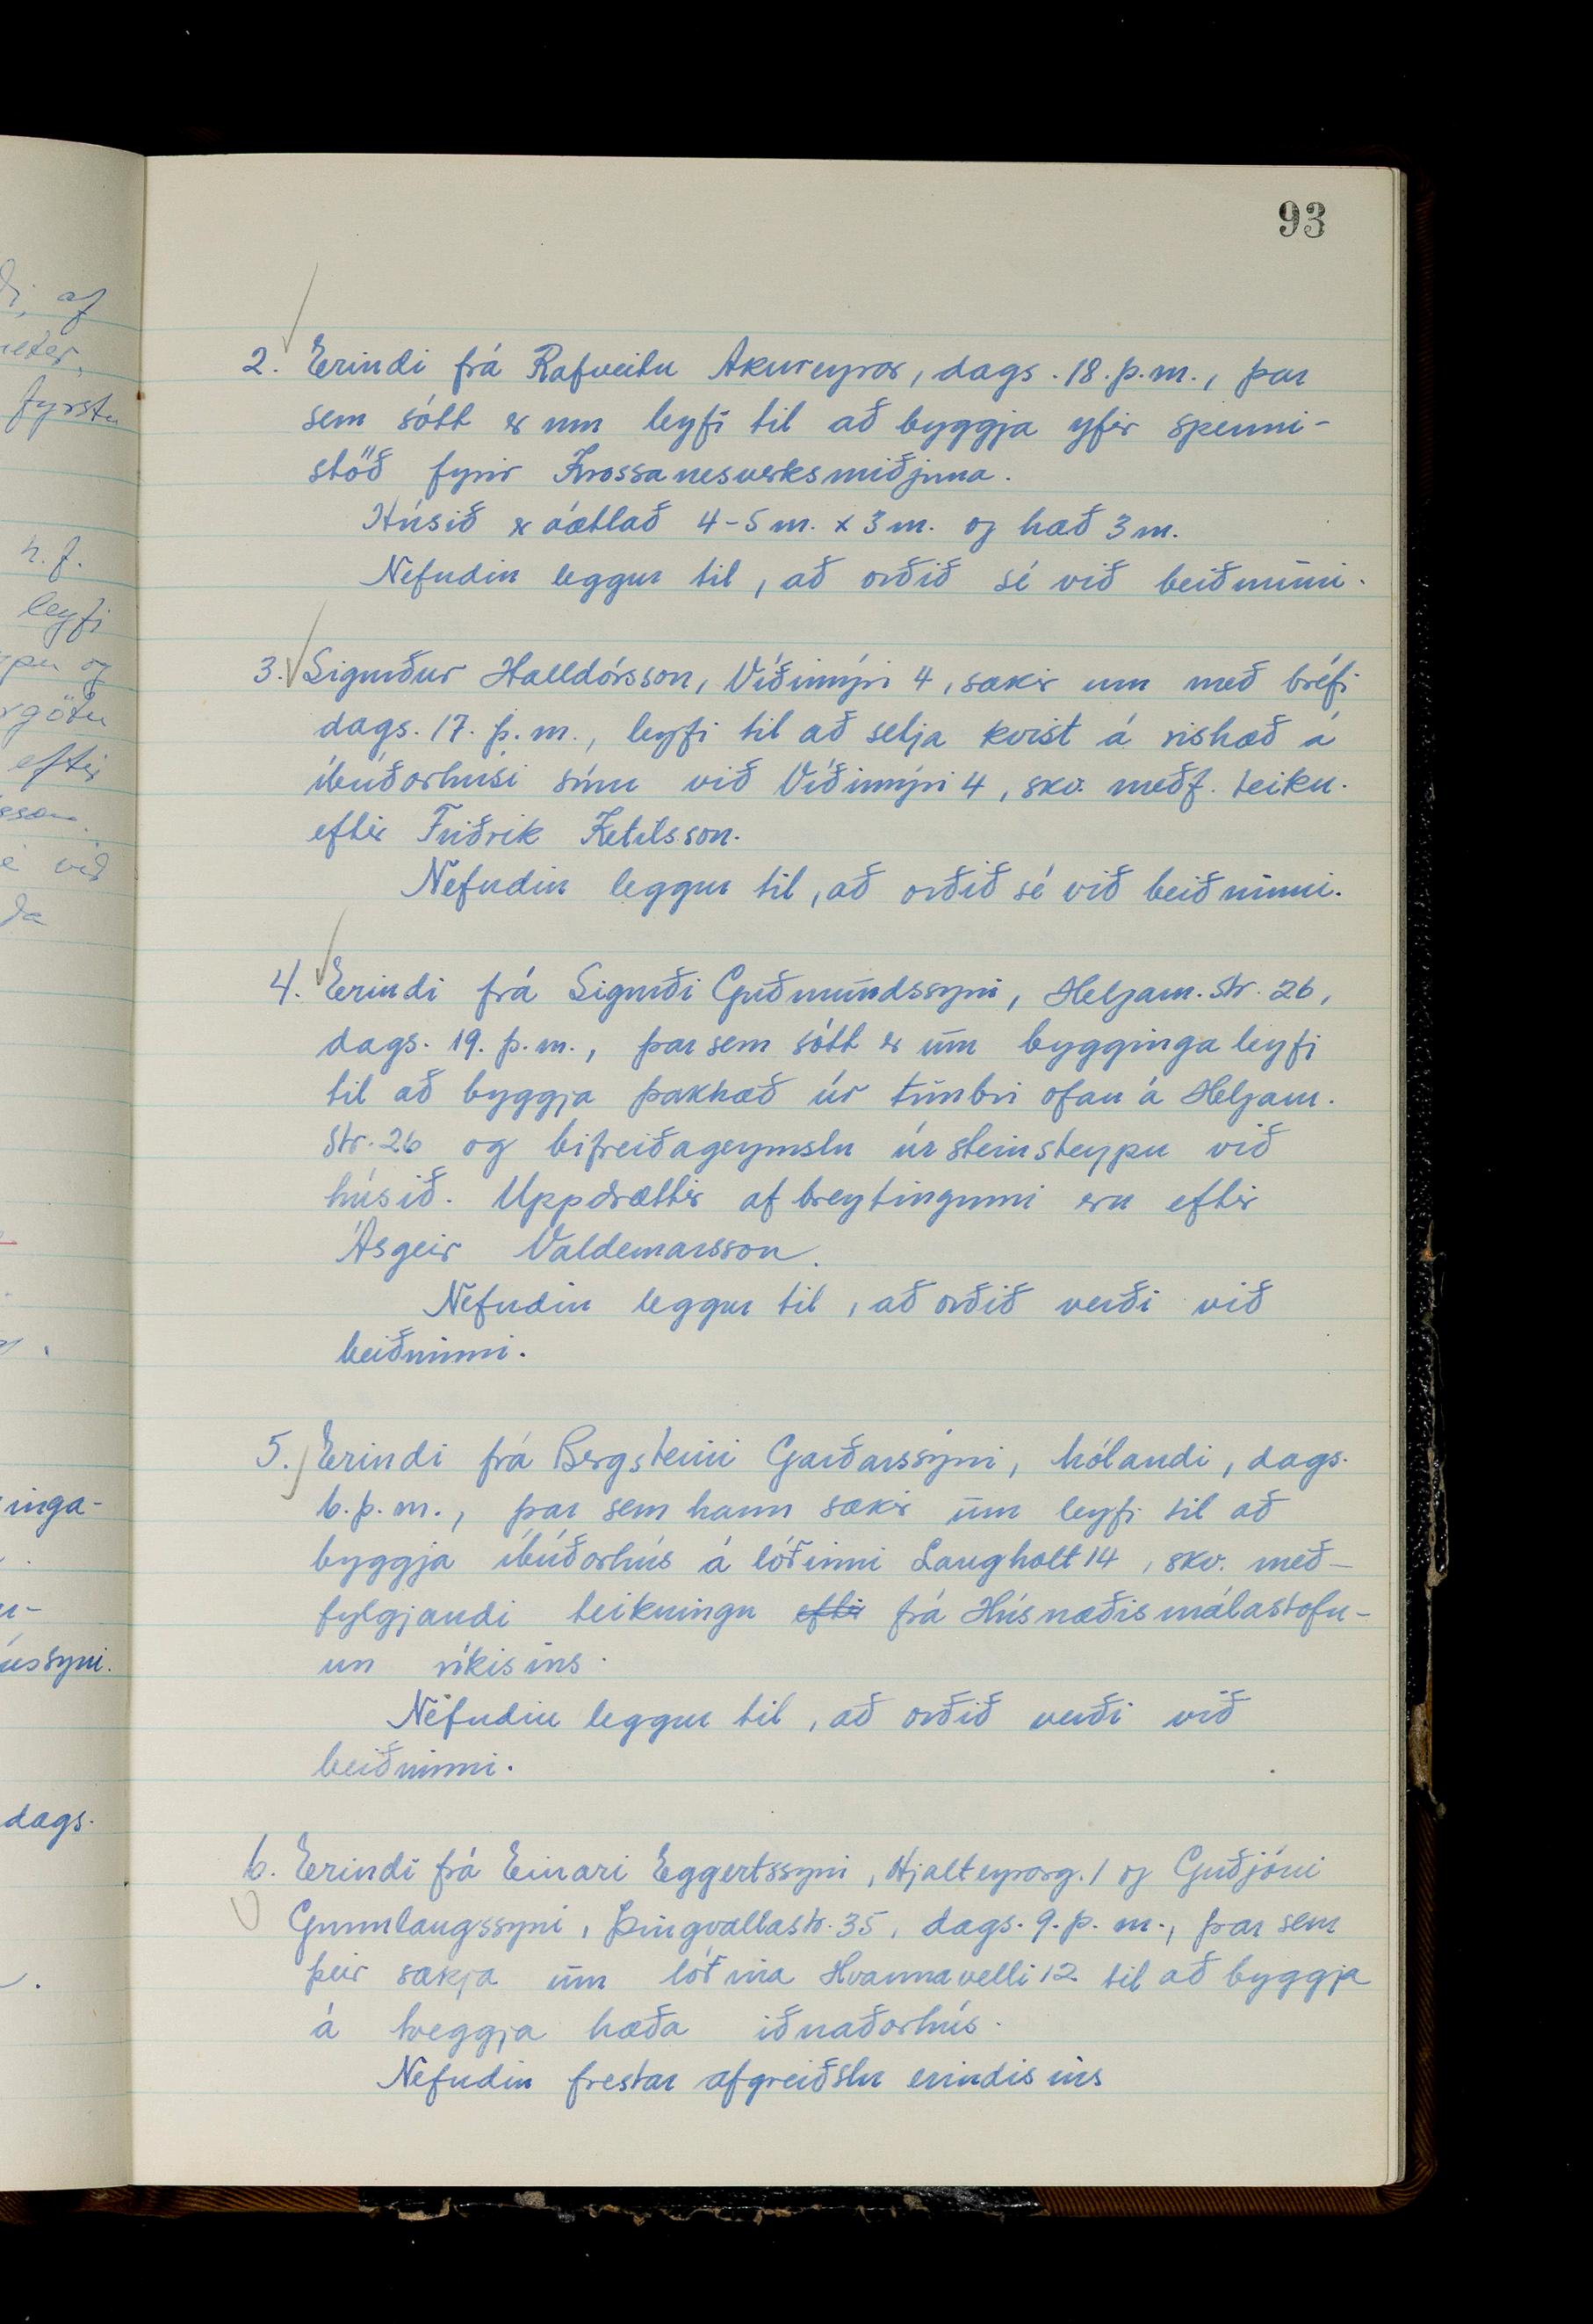 93
2. Erindi frá Rafveitu Akureyrar, dags. 18. þ.m., þar
sem sótt er um leyfi til að byggja yfir spenni-
stöð fyrir Krossanesverksmiðjuna.
Húsið er áætlað 4-5 m. x 3 m. og hæð 3 m.
Nefndin leggur til, að orðið sé við beiðninni.
3. Sigurður Halldórsson, Víðimýri 4, sækir um með bréfi
dags. 17. þ.m., leyfi til að setja kvist á rishæð á
íbúðarhúsi sínu við Víðimýri 4, skv. meðf. teikn.
eftir Friðrik Ketilsson.
Nefndin leggur til, að orðið sé við beiðninni.
4. Erindi frá Sigurði Guðmundssyni, Helgam.str. 26,
dags. 19. þ.m., þar sem sótt er um bygginga leyfi
til að byggja þakhæð úr timbri ofan á Helgam.
str. 26 og bifreiðageymslu úr steinsteypu við
húsið. Uppdrættir af breytingunni eru eftir
Ásgeir Valdemarsson.
Nefndin leggur til, að orðið verði við
beiðninni.
5. Erindi frá Bergsteini Garðarssyni, hólandi, dags.
6. þ.m., þar sem hann sækir um leyfi til að
byggja íbúðarhús á lóðinni Langholt 14, skv. með-
fylgjandi teikningu eftir frá Húsnæðismálastofu-
un ríkisins.
Nefndin leggur til, að orðið verði við
beiðninni.
6. Erindi frá Einari Eggertssyni, Hjalteyrarg. 1 og Guðjóni
Gunnlaugssyni, Þingvallastr. 35, dags. 9. þ.m., þar sem
þeir sækja um lóðina Hvannavelli 12 til að byggja
á tveggja hæða iðnaðarhús.
Nefndin frestar afgreiðslu erindisins